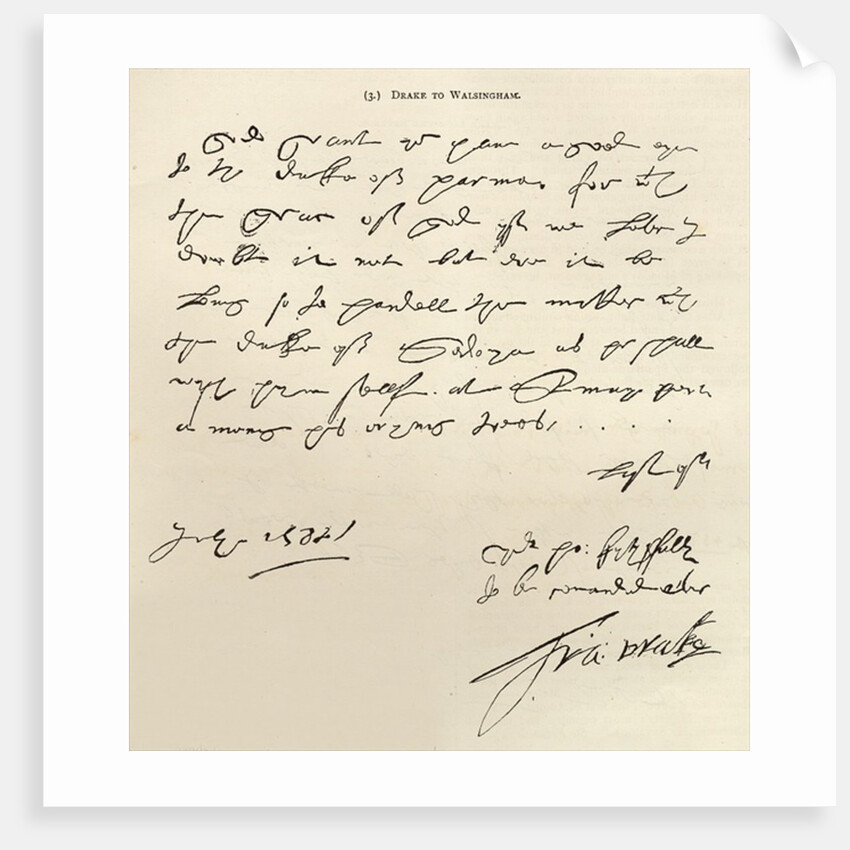 (3.) DRAKE TO WALSINGHAM.
god grant we have a good eye
to the duke off parma, for wth
the grace off god yff we live I
doubt it not but ere it be
long so to handell the matter wth
the duke off Sedonya as he shall
wysh hym sellff at St mary port
a mong his orynge trees, . . . .
last off
July 1588
your ho: faythfully
to be comanded alwaies
Fra: Drake